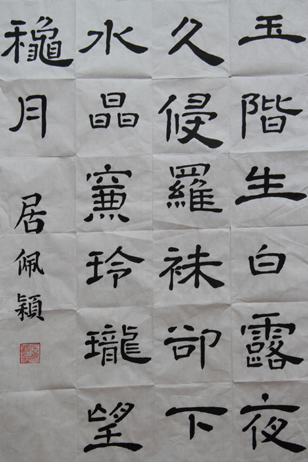 玉階生白露夜
久侵羅袜卻下
水晶簾玲瓏望
龝月
居佩穎